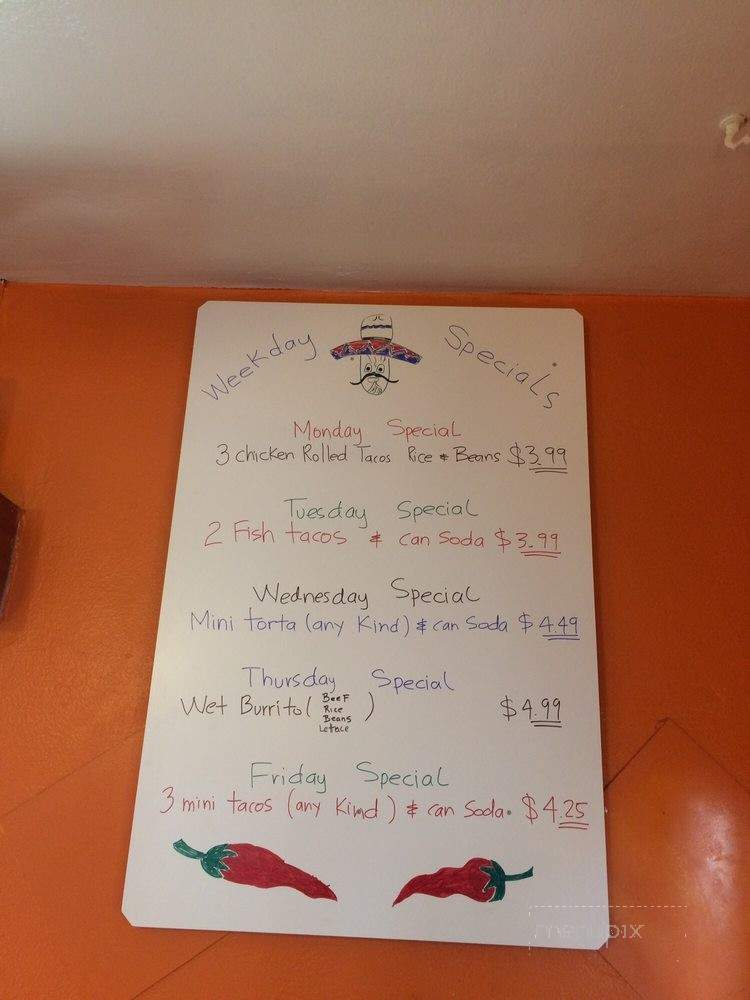 Weekday Specials
Monday Special
3 chicken Rolled Tacos Rice & Beans $3.99
Tuesday Special
2 Fish tacos & can Soda $3.99
Wednesday Special
Mini torta (any Kind) & can Soda $4.49
Thursday Special
Wet Burrito (Beef
Rice
Beans
Letace) $4.99
Friday Special
3 mini tacos (any Kind) & can Soda. $4.25
menupix